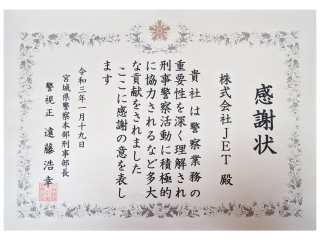 感謝状
株式会社JET 殿
貴社は警察業務の
重要性を深く理解され
刑事警察活動に積極的
に協力されるなど多大
な貢献をされました
ここに感謝の意を表し
ます
令和三年一月十九日
宮城県警察本部刑事部長
警視正 遠藤浩幸